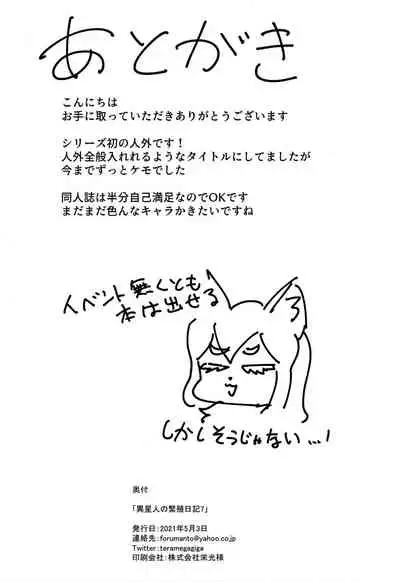 あとがき
こんにちは
お手に取っていただきありがとうございます
シリーズ初の人外です！
人外全般入れれるようなタイトルにしてましたが
今までずっとケモでした
同人誌は半分自己満足なのでOKです
まだまだ色んなキャラかきたいですね
イベント無くとも
本は出せる
しかしそうじゃない…！
奥付
「異星人の繁殖日記7」
発行日：2021年5月3日
連絡先：forumanto@yahoo.co.jp
Twitter：teramegagiga
印刷会社：株式会社栄光様